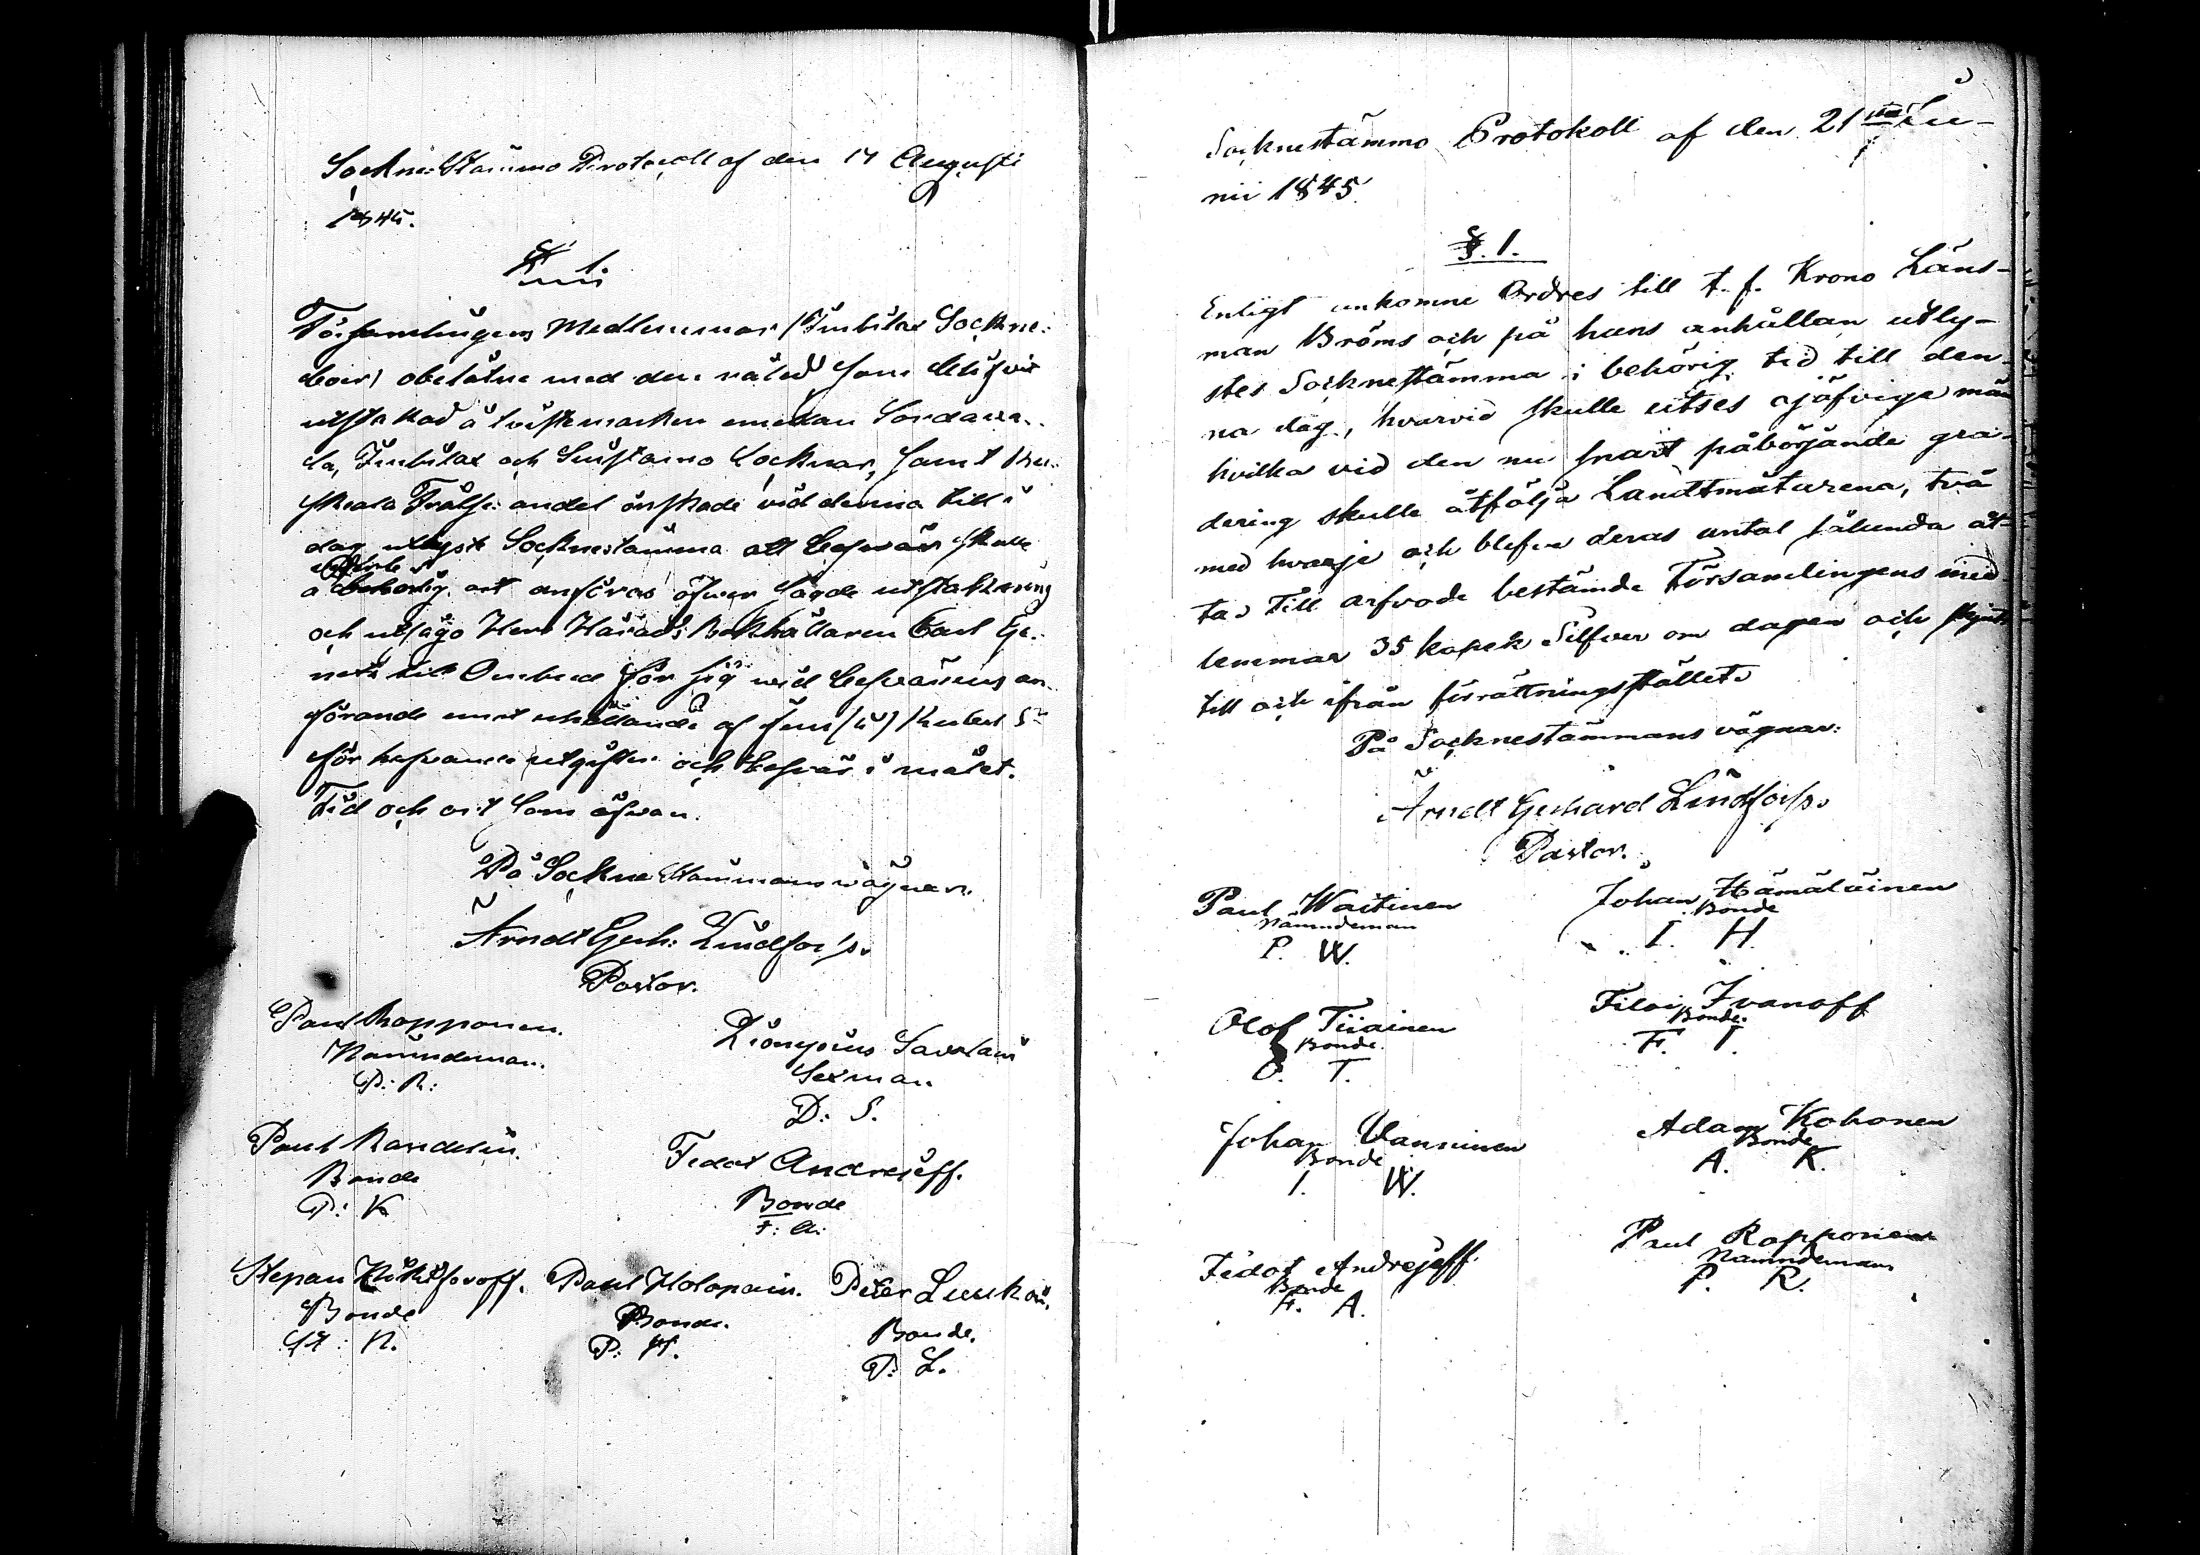 Sockne Stämmo Protocoll af den 17 Augusti
1845.
§ 1.
Församlingens Medlemmar (Imbilax Sockne-
boer) obelåtne med den råled som blifvit
utstakad å tvistemarken emellan Sordava-
la, Imbilax och Suistamo Socknar, samt Ru-
skeala Frälse andel önskade vid denna till i
dag utlyst Socknestämma att besvär skulle
å behörig ort anföras öfver sagde utstakning
och utsågo Herr Härads Bokhållaren Carl Ge-
netz till Ombud för sig wid besvärens an-
förande emot erhållande af fem (5) Rubel Sr
för hafvande utgifter och besvär i målet.
Tid och ort som ofvan.
På Sockne Stämmans vägnar.
Arndt Gerh: Lindforss.
Pastor.
Paul Ropponen. Dionysius Savolain
Nämndeman. Sexman
P: R: D: S.
Paul Fedot Andrejeff.
Bonde Bonde
P: K F: A:
Stepan Nikiforoff. Paul Holopain. Peter Luukain.
Bonde Bonde. Bonde.
St: N. P: H. P: L.
Socknestämmo Protokoll af den 21sta Ju-
nii 1845.
§. 1.
Enligt ankomne Ordres till t. f. Krono Läns-
man Bröms och på hans anhållan utly-
stes Socknestämma i behörig tid till den-
na dag, hvarvid skulle utses ojäfviga män
hvilka vid den nu snart påbörjande gra-
dering skulle åtfölja Landtmätarena, två
med hvarje och blefve deras antal sålunda åt-
ta. Till arfvode bestämde Församlingens med-
lemmar 35 kopek Silfver om dagen och skjuts
till och ifrån förrättningsstället.
På Socknestämmans vägnar:
Arndt Gerhard Lindforss.
Pastor.
Paul Waitinen Johan Hämäläinen
Nämndeman Bonde
P. W. I. H.
Olof Tiiainen Filei Ivanoff
Bonde. Bonde.
O. T. F. I.
Johan Vanninen Adam Kohonen
Bonde Bonde
I. W. A. K.
Fedot Andrejeff Paul Ropponen
Bonde Nämndeman
F. A. P. R.